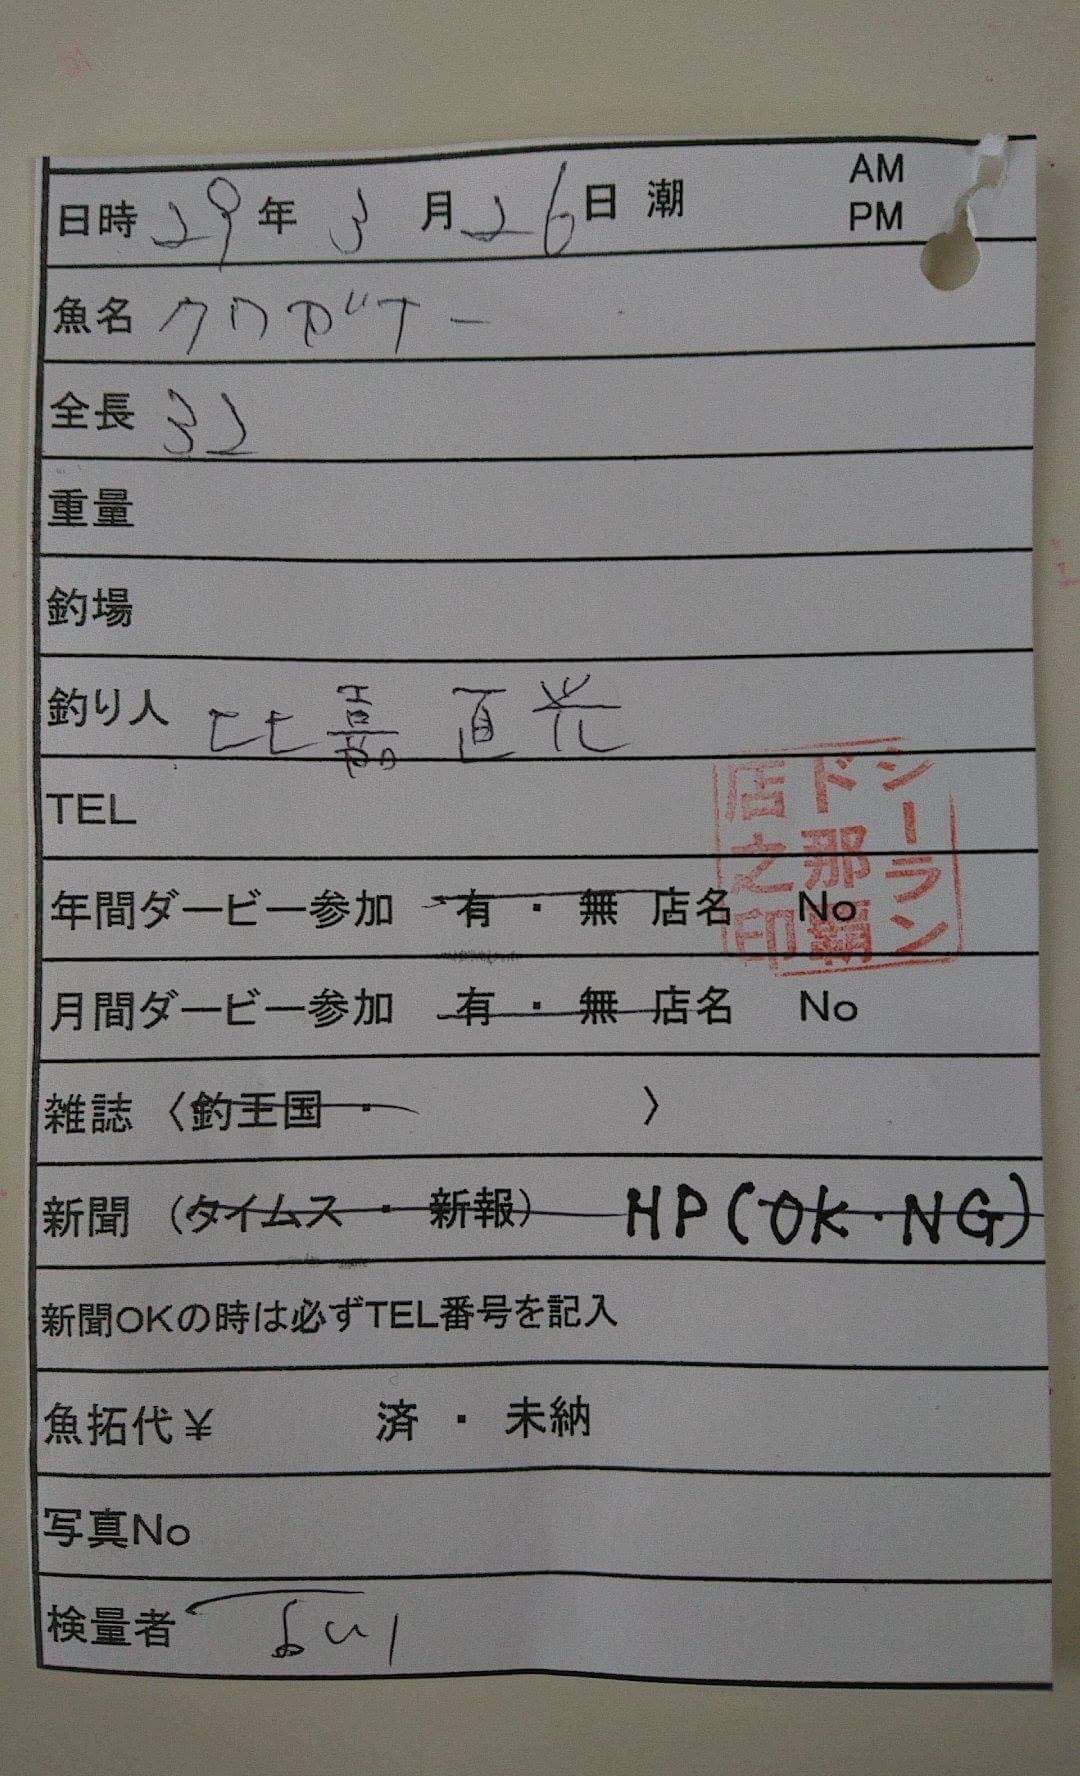 日時 29年 3月26日 潮 AM PM
魚名 クワガナー
全長 32
重量
釣場
釣り人 比嘉 直光
TEL
年間ダービー参加 有・無 店名 No
月間ダービー参加 有・無 店名 No
雑誌〈釣王国・ 〉
新聞（タイムス・新報） HP(OK・NG)
新聞OKの時は必ずTEL番号を記入
魚拓代￥ 済・未納
写真No
検量者
シーランド那覇店之印